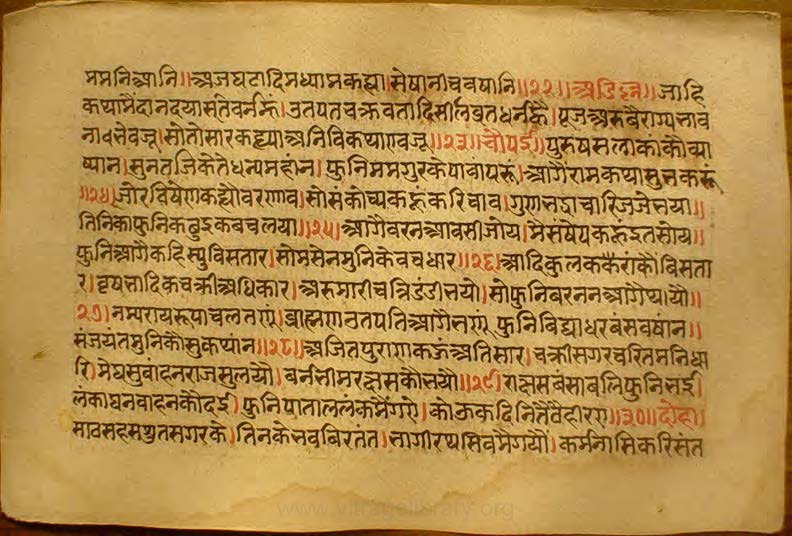 ममनिआनि॥अजघटादिमध्यामकह्या।सेषानीचवषानि॥२२॥अडिल्ल॥जाहि
कथामैंदानदयासंतवर्नई।उतपतचक्रवतादिसीलवुतधर्नई।पूजअरुवैराग्यनाव
नावनेवजू।सोतोसारकह्याअनिविकथाएवजू॥२३॥चौपई॥पुरुषसलाकाकौव्या
ष्यान।सुनतजिकेतेधन्यमहांन।फुनिममगुरकेपावांपरूं।आगैंरामकथासुनकरूं
॥२४॥जोरविषेणकह्यौवरणाव।सोसंकोच्यकहूंकरिचाव।गुणनद्राचारिजजेनया॥
तिनिकाफुनिकवुइकबचलया॥२५॥आगैवरनआवसीजोय।मैसंषेपकहूइतसोय॥
फुनिआगैकहिस्युविसतार।सोमसेनमुनिकेवचधार॥२६॥आदिकुलकरकौबिसता
र।वृषनादिकचक्रीअधिकार।अरुमारीचत्रिडंडीनयो।सोफुनिबरननआगैंथायौ॥
२७॥नम्यरायरूपाचलतएए।ब्राह्मणउतपतिआगैनएए।फुनिविद्याधरबंसवषांन॥
संजयंतमुनिकौसुकथ्यांन॥२८॥अजितपुराणकऊंअतिसार।चक्रीसगरचरितमनिधा
रि।मेघसुवांहनराजसुलयौ।बर्ननीमरक्षसकौनयौ॥२९॥राक्षसबंसाबलिफुनिनई।
लंकाघनवाहनकौदई।फुनिपाताललंकमैंगए।कोऊकदिनितैवैहीरए॥३०॥दोहा॥
सावसहसषुतसगरके।तिनकेनवबिरतंत।नागीरथसिवमैगयौ।कर्मनासिकरिसंत
www.vitragelibrary.org